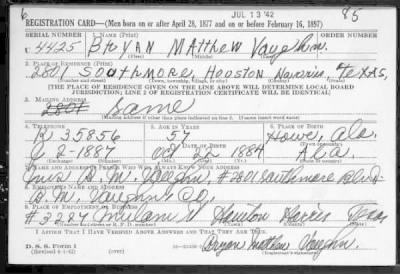 6 JUL 13 '42 85
REGISTRATION CARD—(Men born on or after April 28, 1877 and on or before February 16, 1897)
SERIAL NUMBER 1. NAME (Print) ORDER NUMBER
U 4425 Bryan Matthew Vaughn.
(First) (Middle) (Last)
2. PLACE OF RESIDENCE (Print)
2801 Southmore, Houston Harris Texas,
(Number and street) (Town, township, village, or city) (County) (State)
[THE PLACE OF RESIDENCE GIVEN ON THE LINE ABOVE WILL DETERMINE LOCAL BOARD
JURISDICTION; LINE 2 OF REGISTRATION CERTIFICATE WILL BE IDENTICAL]
3. MAILING ADDRESS
2801 Same
[Mailing address if other than place indicated on line 2. If same insert word same]
4. TELEPHONE 5. AGE IN YEARS 6. PLACE OF BIRTH
K 35856 57 Howe, Ala.
DATE OF BIRTH
12 1884 Ala.
7. NAME AND ADDRESS OF PERSON WHO WILL ALWAYS KNOW YOUR ADDRESS
Mrs B. M. Vaughn, #2801 Southmore Blvd-
8. EMPLOYER'S NAME AND ADDRESS
B. M. Vaughn Co,
9. PLACE OF EMPLOYMENT OR BUSINESS
#3224 Houston Harris Texas
(Number and street or R. F. D. number) (Town) (County) (State)
I AFFIRM THAT I HAVE VERIFIED ABOVE ANSWERS AND THAT THEY ARE TRUE.
D. S. S. Form 1
(Revised 4-1-42) (over)
Bryan Mathew Vaughn.